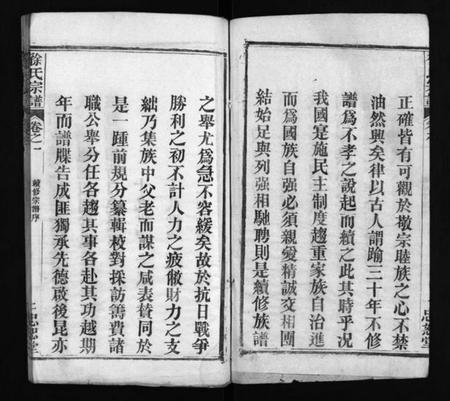 正確皆有可觀於敬宗睦族之心不禁
油然興矣律以古人謂踰三十年不修
譜爲不孝之說起而續之此其時乎況
我國寔施民主制度趨重家族自治進
而爲國族自強必須親愛精誠交相團
結始足與列強相馳聘則是續修族譜
之舉尤爲急不容緩矣故於抗日戰爭
勝利之初不計人力之疲敝財力之支
絀乃集族中父老而謀之咸表贊同於
是一踵前規分纂輯校對採訪善費諸
職公舉分任各趨其事各赴其功越期
年而譜牒告成匪獨承先德啟後昆亦
徐氏宗譜
卷之一
續修宗譜序